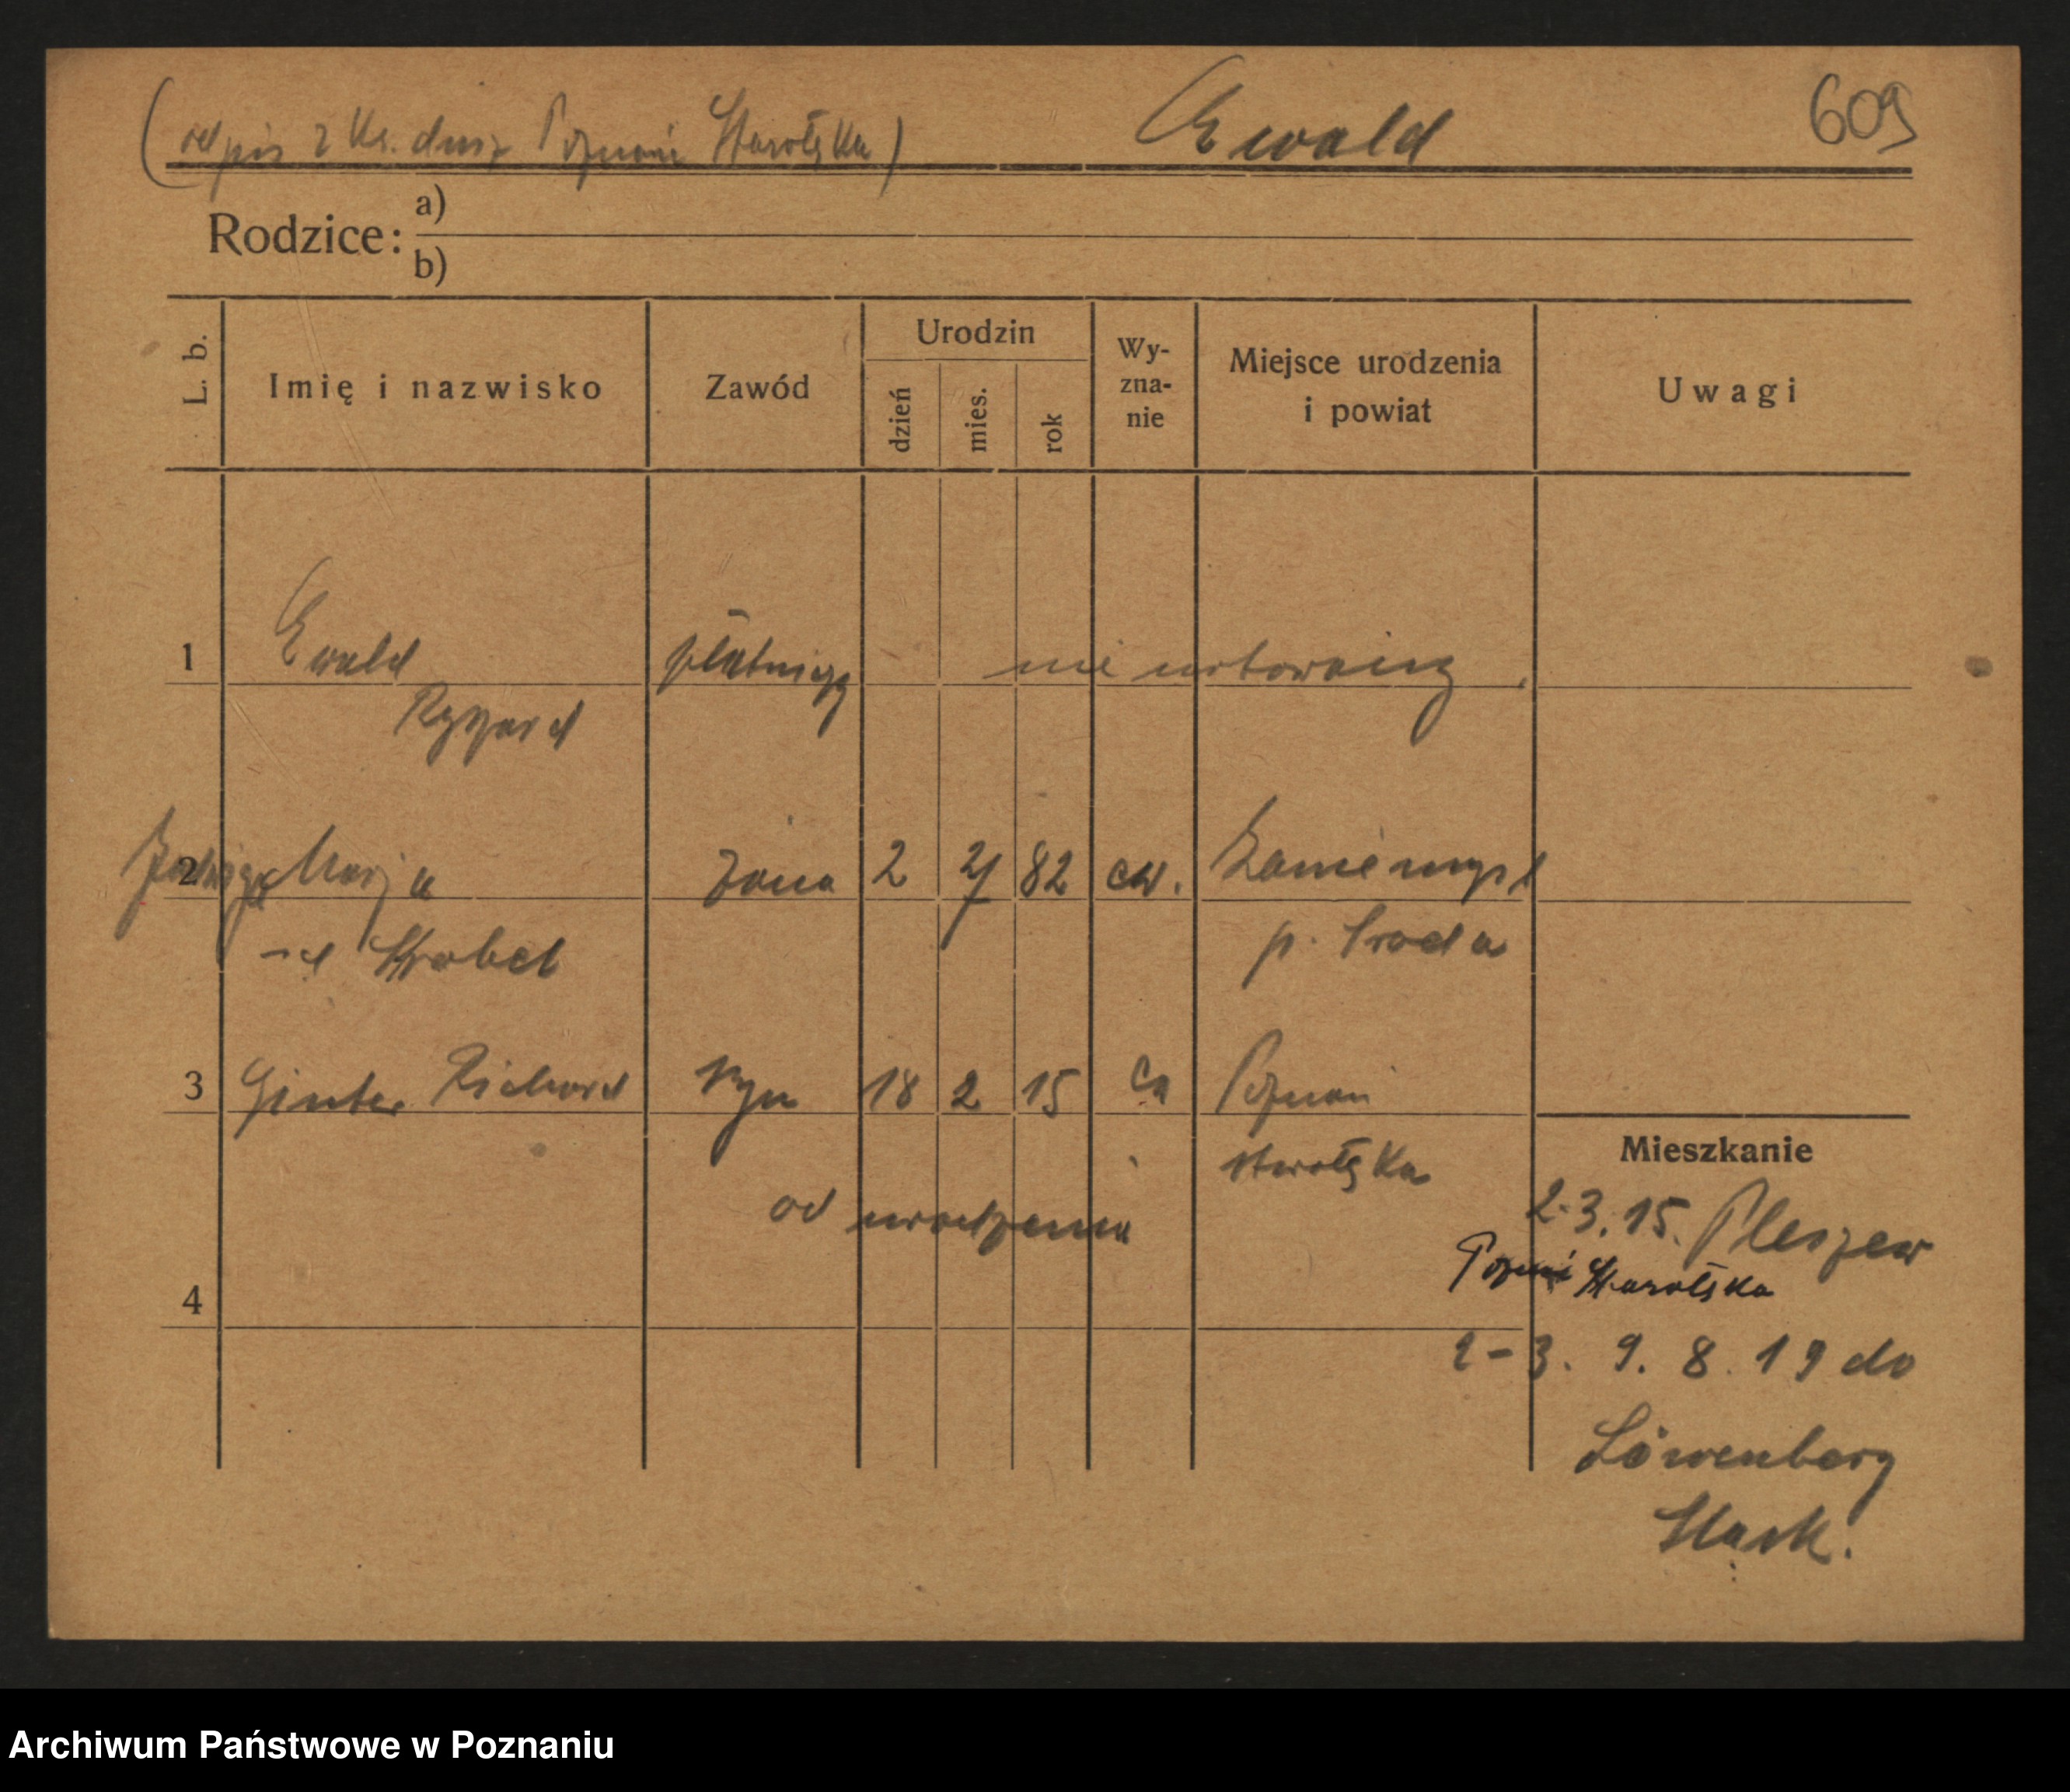 (odpis z ks. dusz Poznań Starołęka) Ewald 609
Rodzice: a)
b)
L. b. Imię i nazwisko Zawód Urodzin dzień mies. rok Wy-zna-nie Miejsce urodzenia i powiat Uwagi
1 Ewald płatniczy nie notowany.
Ryszard
2 Jadwiga Marja żona 2 2 82 ew. Zaniemyśl
-d Strobel p. Środa
3 Ginter Richard syn 18 2 15 ew Poznań
Starołęka
Mieszkanie
od urodzenia
2-3.15. Pleszew
Poznań Starołęka
4
2-3. 9. 8. 19 do
Löwenberg
Śląsk.
Archiwum Państwowe w Poznaniu